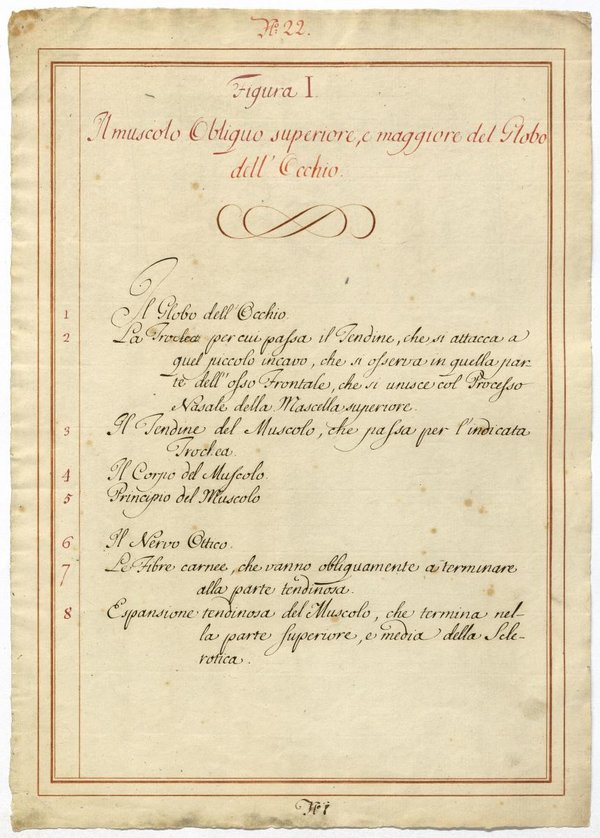 No. 22.
Figura I.
Il muscolo Obliquo superiore, e maggiore del Globo
dell' Occhio.
1 Il Globo dell' Occhio.
2 La Troclea per cui passa il Tendine, che si attacca a
quel piccolo incavo, che si osserva in quella par-
te dell' osso Frontale, che si unisce col Processo
Nasale della Mascella superiore.
3 Il Tendine del Muscolo, che passa per l'indicata
Troclea.
4 Il Corpo del Muscolo.
5 Principio del Muscolo
6 Il Nervo Ottico.
7 Le Fibre carnee, che vanno obliquamente a terminare
alla parte tendinosa.
8 Espansione tendinosa del Muscolo, che termina nel-
la parte superiore, e media della Scle-
rotica.
No. 1